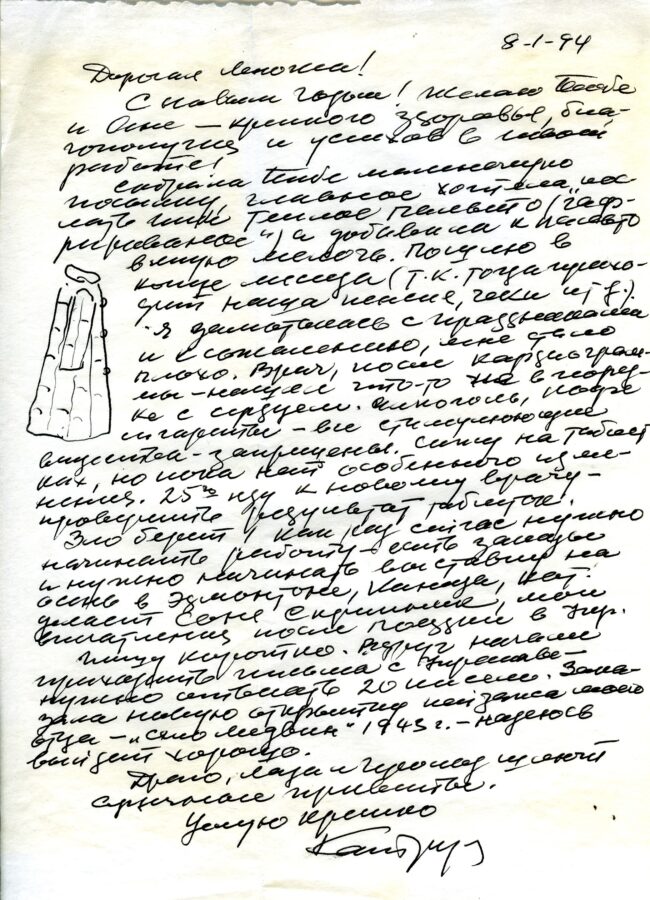 8-1-94
Дорогая Леночка!
С новым годом! Желаю Тебе
и Оле – крепкого здоровья, бла-
гополучия и успехов в твоей
работе!
Собрала Тебе маленькую
посылку, главное хотела „пос-
лать Тёплое пальто (гаф-
рированное") а добавила к пальто
всякую мелочь. Пошлю в
конце месяца (т.к. тогда прихо-
дит наша пенсия, чеки и т.д.).
Я дамоталась с праздниками
и к сожалению, мне стало
плохо. Врач, после кардиограм-
мы – нашел что-то не в поряд-
ке с сердцем. Алкоголь, кофе
сигареты – все стимулующие
вещества – запрещены. Сижу на таблет-
ках, но пока нет особенного изме-
нения. 25го иду к новому врачу –
проверить результат таблеток.
Зло берет! Как раз сейчас нужно
начинать работу – есть заказы
и нужно начинать выставку на
осень в Эдмонтоне, Канада, кот.
делает Соня Скрипник, мои
впечатления после поездки в Укр.
Пишу коротко. Вдруг начали
приходить письма с Украины –
нужно отписать 20 писем. Зака-
зала новую открытку пейзажа моего
отца – „село Медвин" 1943 г. – надеюсь
выйдет хорошо.
Драго, Лаза и шлют
сердечные приветы.
Целую крепко